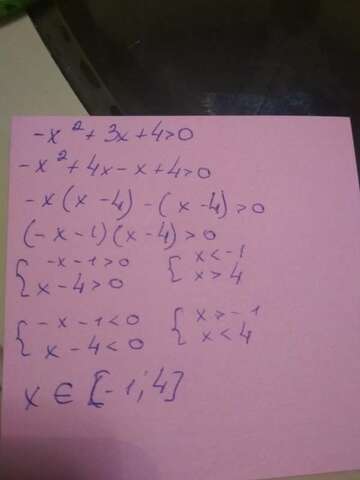 -x² + 3x + 4 > 0
-x² + 4x - x + 4 > 0
-x(x - 4) - (x - 4) > 0
(-x - 1)(x - 4) > 0
{ -x - 1 > 0 { x < -1
x - 4 > 0 x > 4
{ -x - 1 < 0 { x > -1
x - 4 < 0 x < 4
x ∈ [-1; 4]